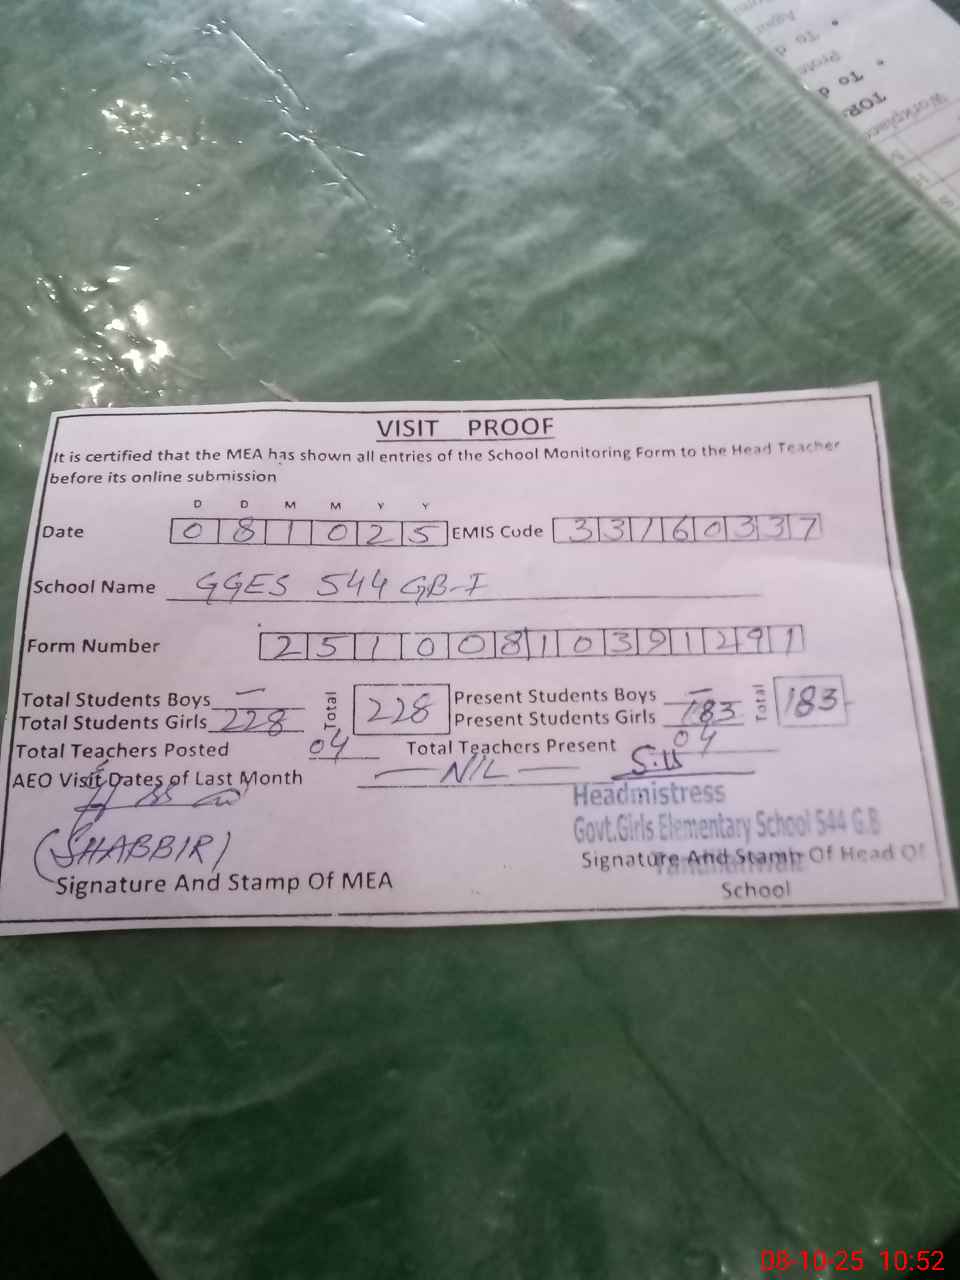 TOR
VISIT PROOF
It is certified that the MEA has shown all entries of the School Monitoring Form to the Head Teacher
before its online submission
D D M M Y Y
Date 0 8 1 0 2 5 EMIS Code 3 3 1 6 0 3 3 7
School Name GGES 544 GB-I
Form Number 2 5 1 0 0 8 1 0 3 9 1 2 9 1
Total Students Boys — Total 228 Present Students Boys — Total 183
Total Students Girls 228 Present Students Girls 183
Total Teachers Posted 04 Total Teachers Present 04
AEO Visit Dates of Last Month — NIL —
Headmistress
Govt.Girls Elementary School 544 G.B
(SHABBIR)
Signature And Stamp Of MEA
Signature And Stamp Of Head Of
School
08-10-25 10:52